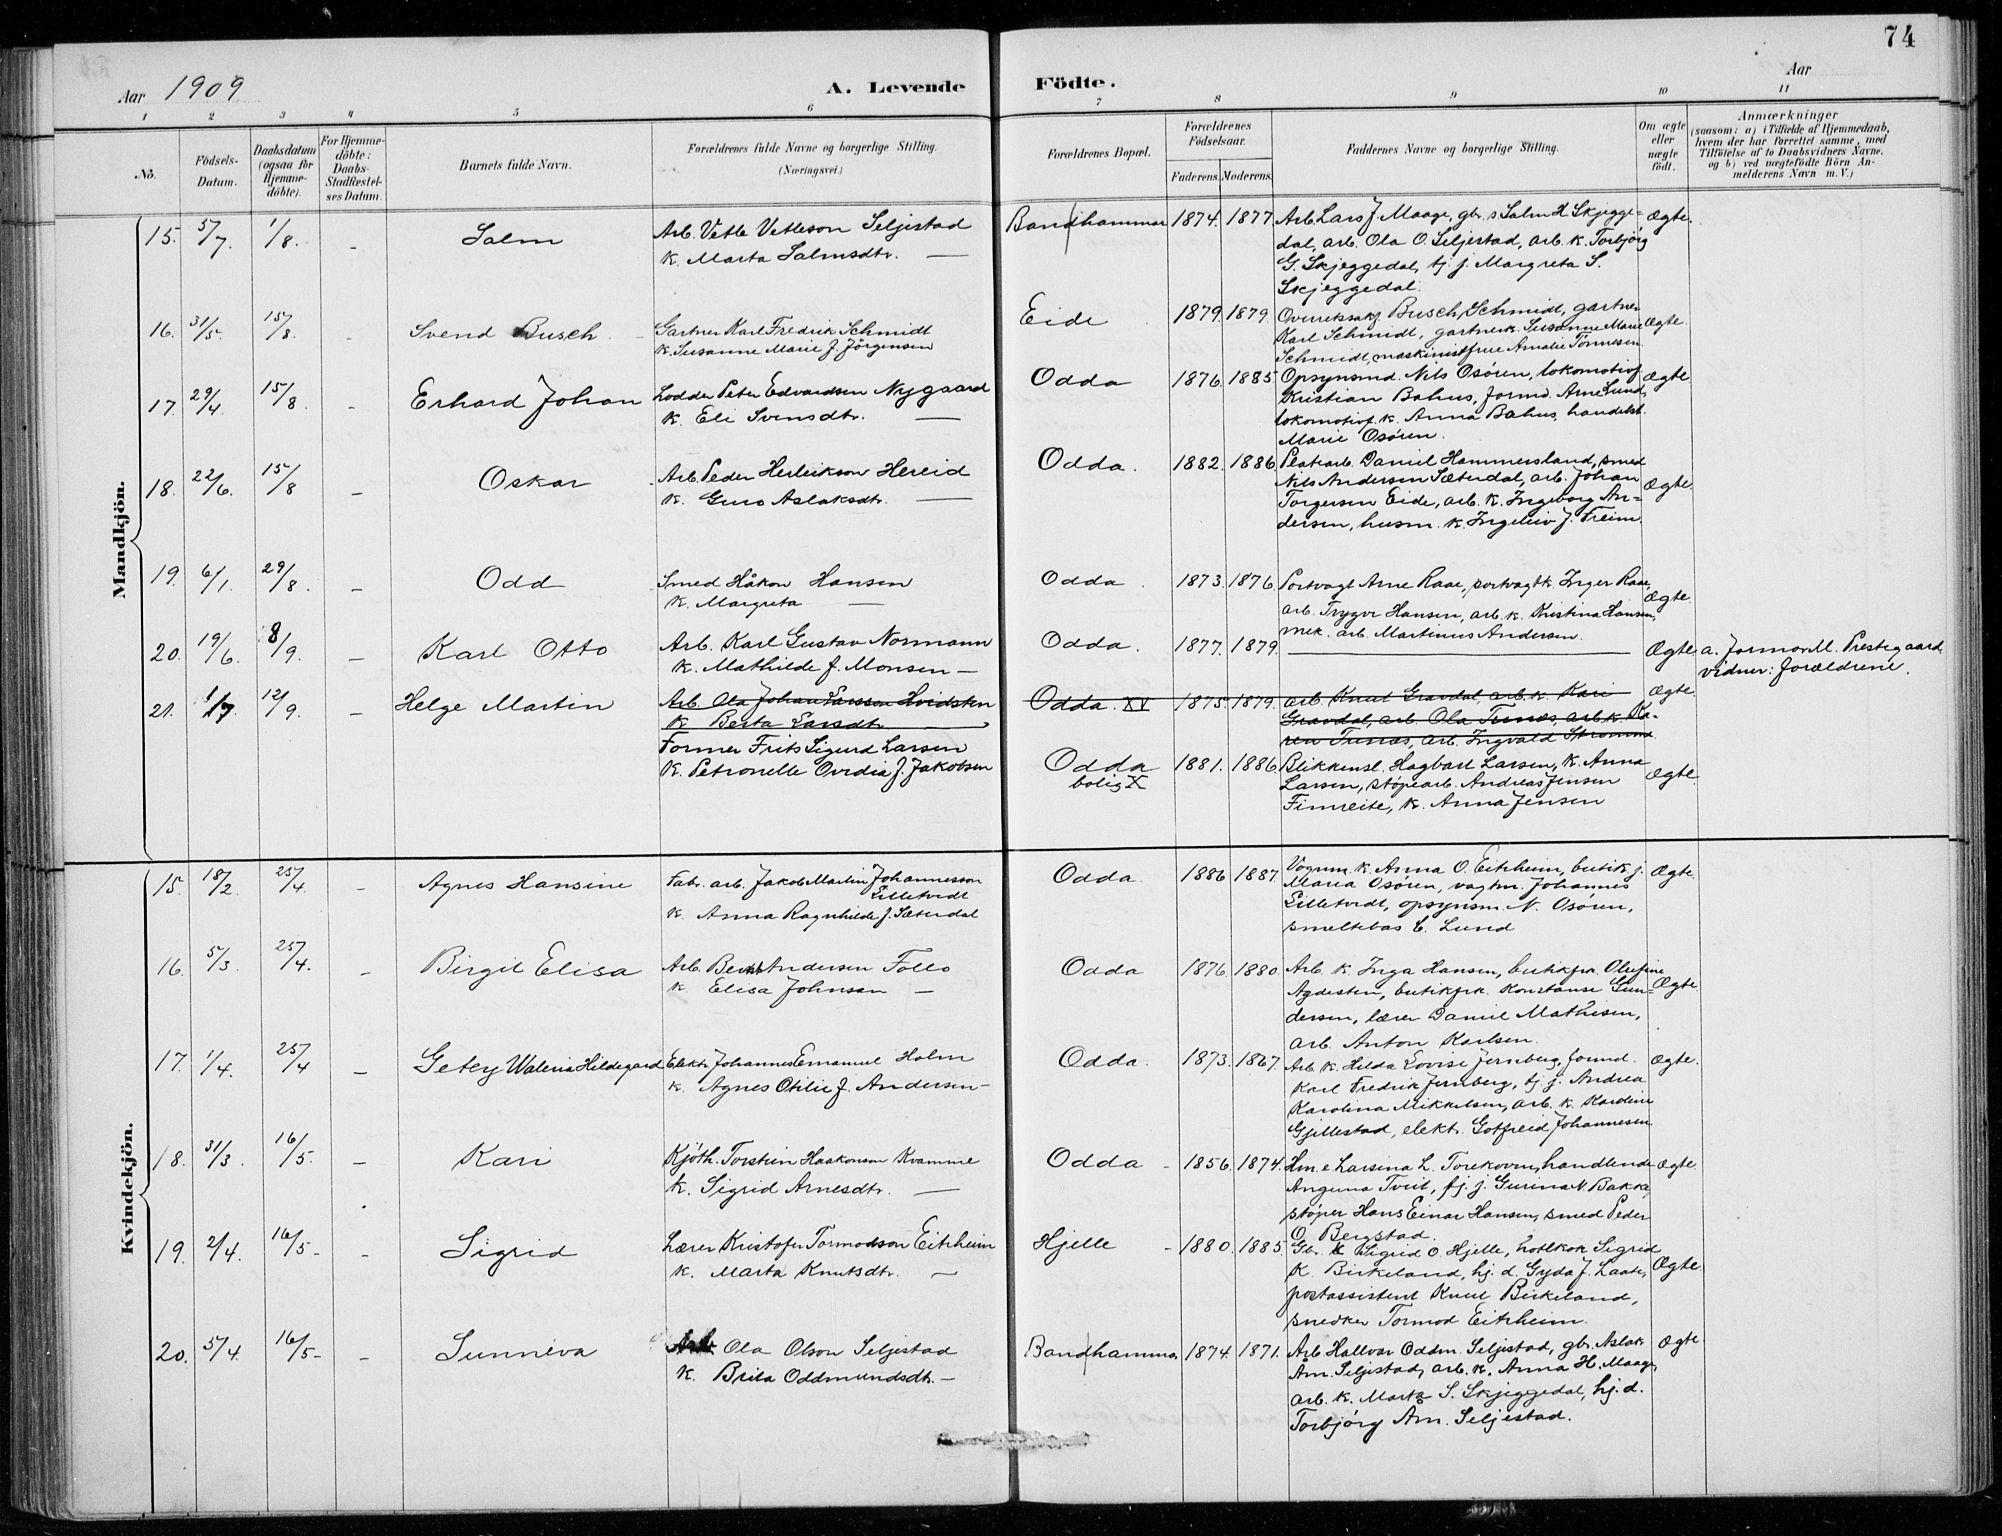 74
Aar 1909 A. Levende Födte. Aar
1 2 3 4 5 6 7 8 9 10 11
No.
Födsels-Datum.
Daabsdatum (ogsaa för Hjemme-döbte).
For Hjemme-döbte: Daabs-Stadfæstel-ses Datum.
Barnets fulde Navn.
Forældrenes fulde Navne og borgerlige Stilling.
(Næringsvei.)
Forældrenes Bopæl.
Forældrenes Födselsaar.
Faderens. Moderens.
Faddernes Navne og borgerlige Stilling.
Om ægte eller uægte födt.
Anmærkninger
(saasom: a) i Tilfælde af Hjemmedaab,
hvem der har forrettet samme, med
Tilföielse af to Daabsvidners Navne.
og b) ved uægtefödte Börn An-
melderens Navn m. V.)
Mandkjön.
15. 5/7 1/8. - Salm
Arb. Vetle Vetleson Seljestad
K. Marta Salmsdtr. —
Bandhammar 1874. 1877.
Arb. Lars J. Maage, gbr. s. Salm H. Skjegge-
dal, arb. Ola O. Seljestad, arb. k. Torbjörg
G. Skjeggedal, tj. j. Margreta S.
Skjeggedal.
Ægte.
16. 31/5. 15/8. - Svend Busch.
Gartner Karl Fredrik Schmidt
K. Susanne Marie J. Jörgensen
Eide 1879. 1879.
Overretssakf. Busch, Schmidt, gartner
Karl Schmidt, gartnerk. Susanne Marie
Schmidt, maskinistfrue Amalie Tönnesen
Ægte.
17. 29/4. 15/8. - Erhard Johan
Lodder Peter Edvardsen Nygaard
K. Eli Svensdtr. —
Odda 1876. 1885.
Opsynsmd. Nils Osören, lokomotivf.
Kristian Bahus, formd. Arne Lund,
lokomotivf. k. Anna Bahus, handelst.
Marie Osören.
Ægte
18. 22/6. 15/8 - Oskar
Arb. Peder Herleikson Hereid
K. Guro Aslaksdtr. —
Odda. 1882. 1886
Daniel Hammersland, smed
Nils Andersen Sæterdal, arb. Johan
Torgersen Eide, arb. k. Ingeborg An-
dersen, husm. k. Ingeleiv J. Freim.
Ægte.
19. 6/1. 29/8. - Odd
Smed Håkon Hansen
K. Margreta —
Odda. 1873. 1876.
Portvagt Arne Raae, portvagtk. Inger Raae,
arb. Trygve Hansen, arb. k. Kristina Hansen,
mek. arb. Martinius Andersen.
Ægte.
20. 19/6. 8/9. - Karl Otto
Arb. Karl Gustav Normann
K. Mathilde J. Monsen —
Odda. 1877. 1879. —
Ægte
a. Jormor M. Prestegaard.
vidner: forældrene.
21. 1/7 12/9. - Helge Martin
Arb. Ola Johan Larsson Hvidsten
K Berta Larsdt.
Odda. XV 1875. 1879.
arb. Knut Gravdal, arb. k. Kari
Gravdal, arb. Ola Tunæs, arb. k. Ka-
ren Tunæs, arb. Ingvald Strömme
Ægte.
Former Frits Sigurd Larsen
K. Petronelle Ovidia J. Jakobsen
Odda
bolig X
1881. 1886
Blikkensl. Hagbart Larsen, K. Anna
Larsen, stöpearb. Andreas Jensen
Finreite, K. Anna Jensen
Ægte.
Kvindekjön.
15. 18/2. 25/4. - Agnes Hansine
Fabr. arb. Jakob Martin Johannesson
Lilletvedt
K. Anna Ragnhilde J. Sæterdal
Odda. 1886 1887.
Vognm. k. Anna O. Eitrheim, butikj.
Maria Osören, vagtm. Johannes
Lilletvedt, opsynsm. N. Osören,
smeltebas E. Lund
Ægte.
16. 5/3. 25/4. - Birgit Elisa
Arb. Bernt Andersen Follo
K. Elisa Johnsen —
Odda 1876. 1880.
Arb. k. Inga Hansen, butikfrk. Olufine
Agdestein, butikfrk. Konstanse Gun-
dersen, lærer Daniel Mathisen,
arb. Anton Karlsen.
Ægte.
17. 1/4. 25/4 - Getey Waleria Hildegard
Elektr. Johannes Emanuel Holm
K. Agnes Otilie J. Andersen —
Odda. 1873. 1867.
Arb. k. Hilda Lovise Jernberg, formd.
Karl Fredrik Jernberg, tj. j. Andrea
Karolina Mikkelsen, arb. k. Kardine
Gjillestad, elektr. Gotfreid Johannesen
Ægte.
18. 31/3. 16/5. - Kari
Kjöth. Torstein Haakonson Kvamme
K. Sigrid Arnesdtr. —
Odda - 1856. 1874.
Hm. e. Larsina L. Torekoven, handlende
Anguna Tveit, tj. j. Gurina N. Bakke,
stöper Hans Einar Hansen, smed Peder
O. Bergstad.
Ægte.
19. 2/4. 16/5 - - Sigrid
Lærer Kristofer Tormodson Eitrheim
K. Marta Knutsdtr. —
Hjelle - 1880. 1885.
Gbr. k. Sigrid O. Hjelle, hotelkok Sigrid
K. Birkeland, hj. d. Gyda J. Laate,
postassistent Knut Birkeland,
snedker Tormod Eitrheim.
Ægte.
20. 5/4. 16/5 - - Sunneva
Arb Ola Olson Seljestad
K. Brita Oddmundsdt. —
Bandhammar 1874. 1871.
Arb. Hallvar Oddm. Seljestad, gbr. Aslak
Am. Seljestad, arb. k. Anna H. Maage,
arb. k. Marta S. Skjeggedal, hj. d.
Torbjörg Am. Seljestad.
Ægte